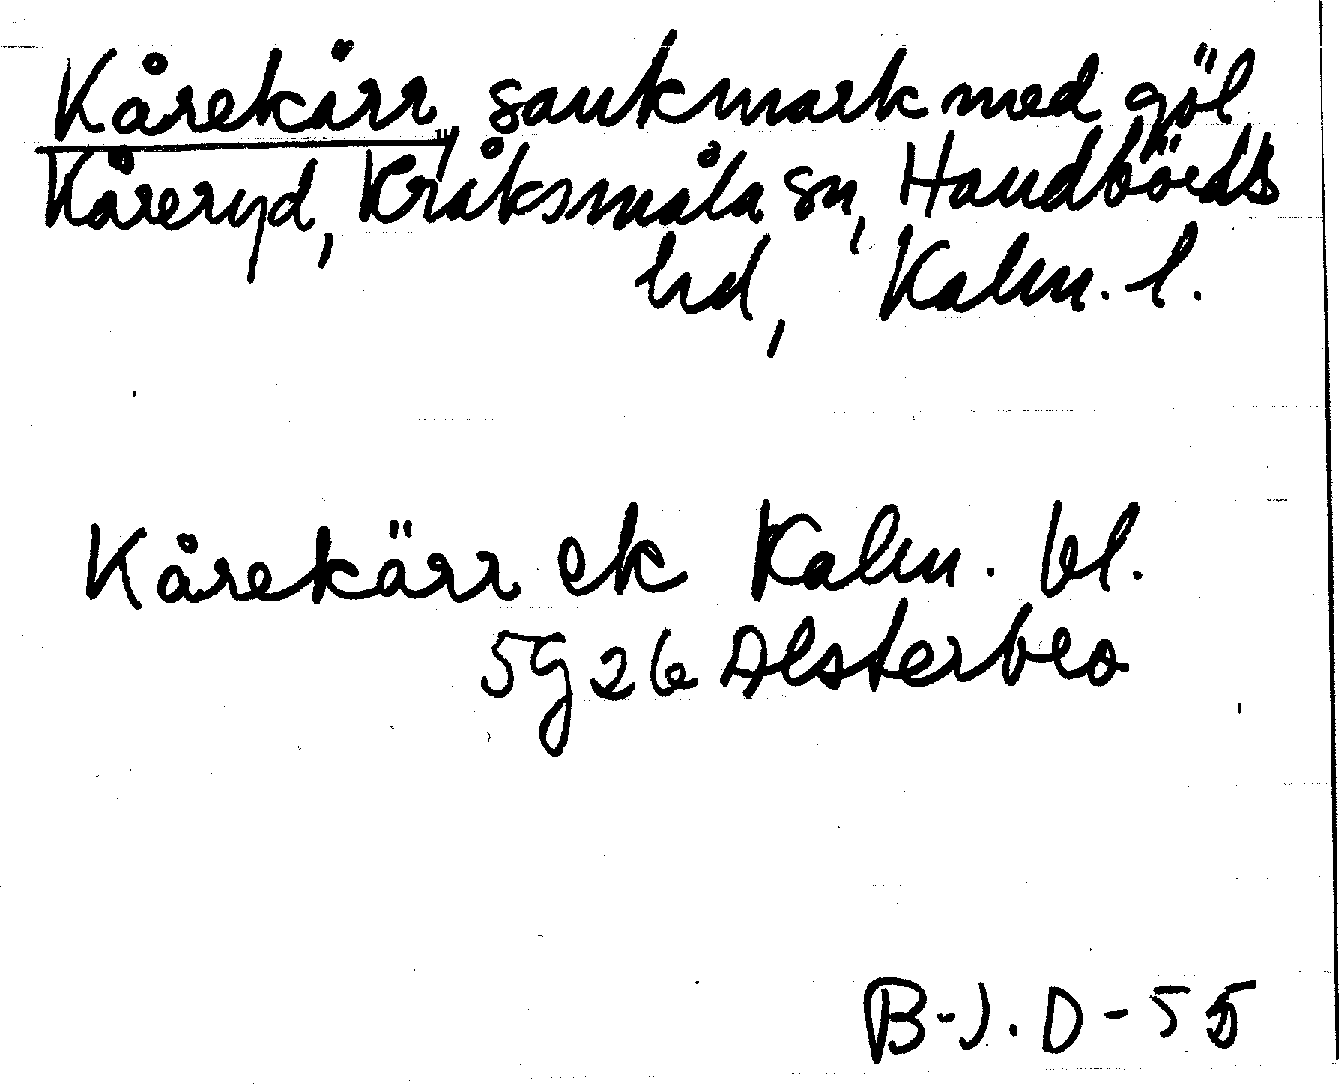 Kårekärr, sankmark med göl
Kåreryd, Kråksmåla sn, Handbörds
hd, Kalm. l.
Kårekärr ek Kalm. bl.
5g26 Alsterbro
B-J. D-55